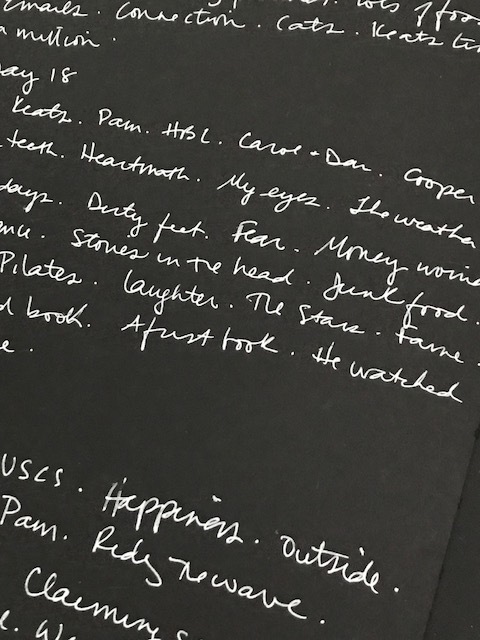 Emails. Connection. Cats. Keats
a million.
ay 18
Keats. Pam. HBL. Carol + Dan. Cooper
teeth. Heartmath. My eyes. The weather
days. Dusty feet. Fear. Money
Stories in the head. Junk food.
Pilates. laughter. The Stars. Fame.
book. A first book. He watched
e.
USCS. Happiness. Outside.
Pam. Ridg the wave.
Claiming